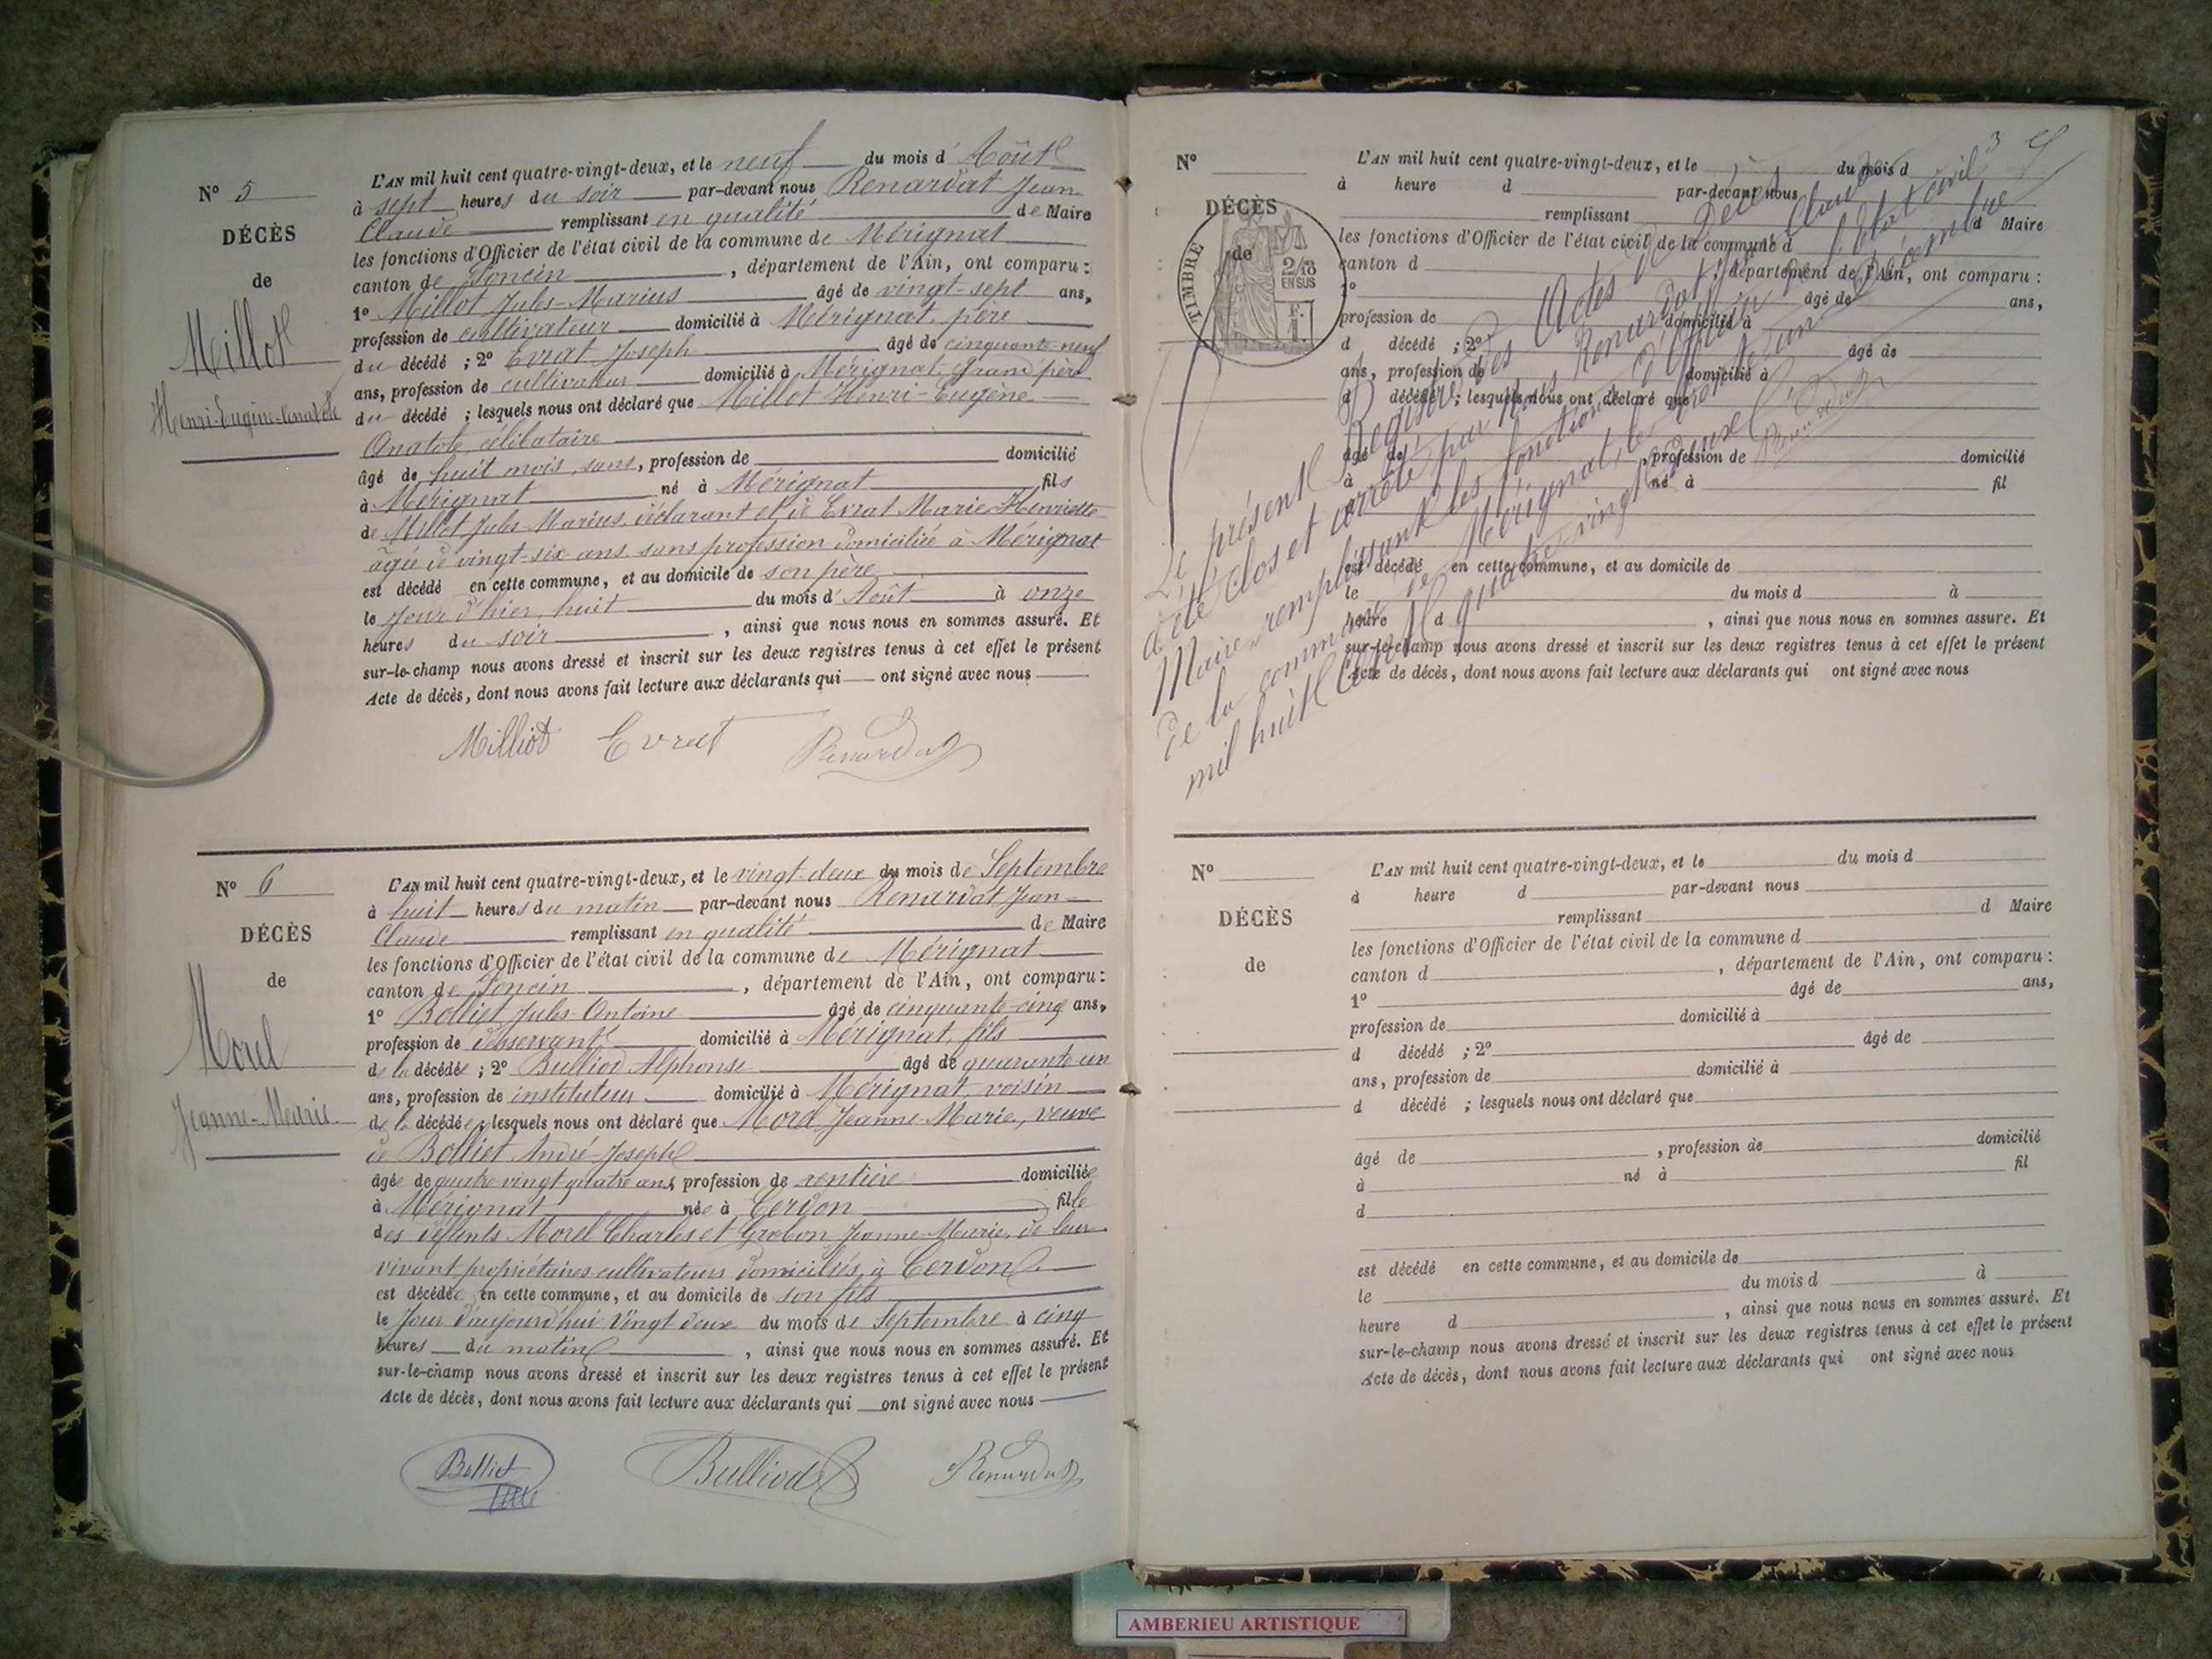 N° 5
DÉCÈS
de
Millot
Henri-Eugène-Anatole
L'AN mil huit cent quatre-vingt-deux, et le neuf du mois d'Août
à sept heures du soir par-devant nous Renardat Jean
Claude remplissant en qualité de Maire
les fonctions d'Officier de l'état civil de la commune de Mérignat
canton de Poncin, département de l'Ain, ont comparu :
1° Millot Jules-Marius âgé de vingt-sept ans,
profession de cultivateur domicilié à Mérignat, père
du décédé ; 2° Evrat Joseph âgé de cinquante-neuf
ans, profession de cultivateur domicilié à Mérignat, Grand père
du décédé ; lesquels nous ont déclaré que Millot Henri-Eugène
Anatole, célibataire
âgé de huit mois, sans, profession de domicilié
à Mérignat né à Mérignat fils
de Millot Jules-Marius, déclarant et de Evrat Marie-Henriette
âgée de vingt-six ans sans profession domiciliée à Mérignat
est décédé en cette commune, et au domicile de son père
le jour d'hier, huit du mois d'Août à onze
heures du soir, ainsi que nous nous en sommes assuré. Et
sur-le-champ nous avons dressé et inscrit sur les deux registres tenus à cet effet le présent
Acte de décès, dont nous avons fait lecture aux déclarants qui ont signé avec nous
Milliot Evrat Renardat
N° 6
DÉCÈS
de
Morel
Jeanne-Marie
L'AN mil huit cent quatre-vingt-deux, et le vingt-deux du mois de Septembre
à huit heures du matin par-devant nous Renardat Jean
Claude remplissant en qualité de Maire
les fonctions d'Officier de l'état civil de la commune de Mérignat
canton de Poncin, département de l'Ain, ont comparu :
1° Bolliet Jules-Antoine âgé de cinquante-cinq ans,
profession de desservant domicilié à Mérignat, fils
de la décédée ; 2° Bulliod Alphonse âgé de quarante-un
ans, profession de instituteur domicilié à Mérignat, voisin
de la décédée ; lesquels nous ont déclaré que Morel Jeanne-Marie, veuve
de Bolliet André-Joseph
âgée de quatre-vingt-quatre ans, profession de rentière domiciliée
à Mérignat née à Cerdon fille
des défunts Morel Charles et Grobon Jeanne-Marie, de leur
vivant propriétaires cultivateurs domiciliés à Cerdon
est décédée en cette commune, et au domicile de son fils
le jour d'aujourd'hui vingt-deux du mois de Septembre à cinq
heures du matin, ainsi que nous nous en sommes assuré. Et
sur-le-champ nous avons dressé et inscrit sur les deux registres tenus à cet effet le présent
Acte de décès, dont nous avons fait lecture aux déclarants qui ont signé avec nous
Bolliet Bulliod Renardat
3
N°
DÉCÈS
de
TIMBRE
2/10
EN SUS
F.
1.
L'AN mil huit cent quatre-vingt-deux, et le du mois d
à heure d par-devant nous
remplissant d Maire
les fonctions d'Officier de l'état civil de la commune d
canton d , département de l'Ain, ont comparu :
1° âgé de ans,
profession de domicilié à
d décédé ; 2° âgé de
ans, profession de domicilié à
d décédé ; lesquels nous ont déclaré que
âgé de , profession de domicilié
à né à fil
est décédé en cette commune, et au domicile de
le du mois d à
heure d , ainsi que nous nous en sommes assuré. Et
sur-le-champ nous avons dressé et inscrit sur les deux registres tenus à cet effet le présent
Acte de décès, dont nous avons fait lecture aux déclarants qui ont signé avec nous
Le présent Registre des Actes de Décès
a été clos et arrêté par nous Renardat Jean Claude
Maire, remplissant les fonctions d'Officier de l'état civil
de la commune de Mérignat, le trente-un Décembre
mil huit cent quatre-vingt-deux
Renardat
N°
DÉCÈS
de
L'AN mil huit cent quatre-vingt-deux, et le du mois d
à heure d par-devant nous
remplissant d Maire
les fonctions d'Officier de l'état civil de la commune d
canton d , département de l'Ain, ont comparu :
1° âgé de ans,
profession de domicilié à
d décédé ; 2° âgé de
ans, profession de domicilié à
d décédé ; lesquels nous ont déclaré que
âgé de , profession de domicilié
à né à fil
d
est décédé en cette commune, et au domicile de
le du mois d à
heure d , ainsi que nous nous en sommes assuré. Et
sur-le-champ nous avons dressé et inscrit sur les deux registres tenus à cet effet le présent
Acte de décès, dont nous avons fait lecture aux déclarants qui ont signé avec nous
AMBERIEU ARTISTIQUE